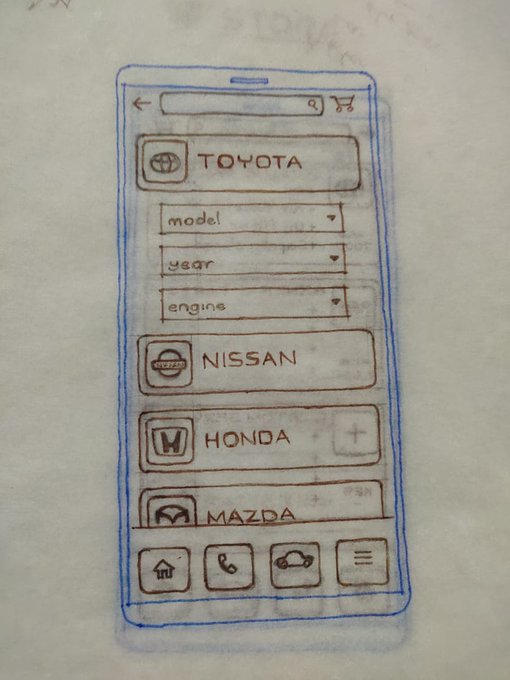 TOYOTA
model
year
engine
NISSAN
NISSAN
HONDA
MAZDA